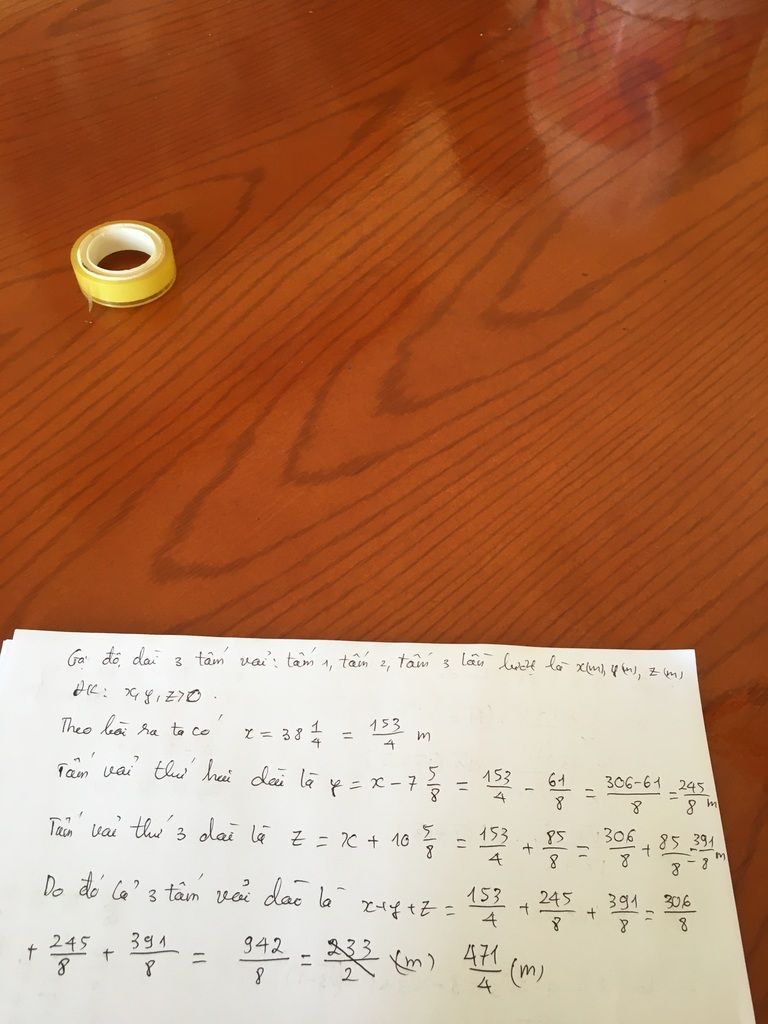 Gọi độ dài 3 tấm vải: tấm 1, tấm 2, tấm 3 lần lượt là x(m), y(m), z(m)
ĐK: x, y, z > 0.
Theo bài ra ta có x = 38 1/4 = 153/4 m
Tấm vải thứ hai dài là y = x - 7 5/8 = 153/4 - 61/8 = 306-61/8 = 245/8 m
Tấm vải thứ 3 dài là z = x + 10 5/8 = 153/4 + 85/8 = 306/8 + 85/8 = 391/8 m
Do đó cả 3 tấm vải dài là x+y+z = 153/4 + 245/8 + 391/8 = 306/8
+ 245/8 + 391/8 = 942/8 = 233/2 (m) 471/4 (m)